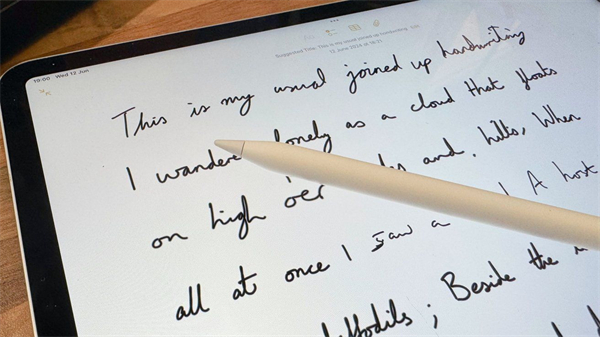 19:00 Wed 12 Jun
Suggested Title: This is my usual joined up handwriting
12 June 2024 at
This is my usual joined up handwriting
I wandere lonely as a cloud that floats
on high oer and hills, When
all at once I saw a A host
daffodils; Beside the